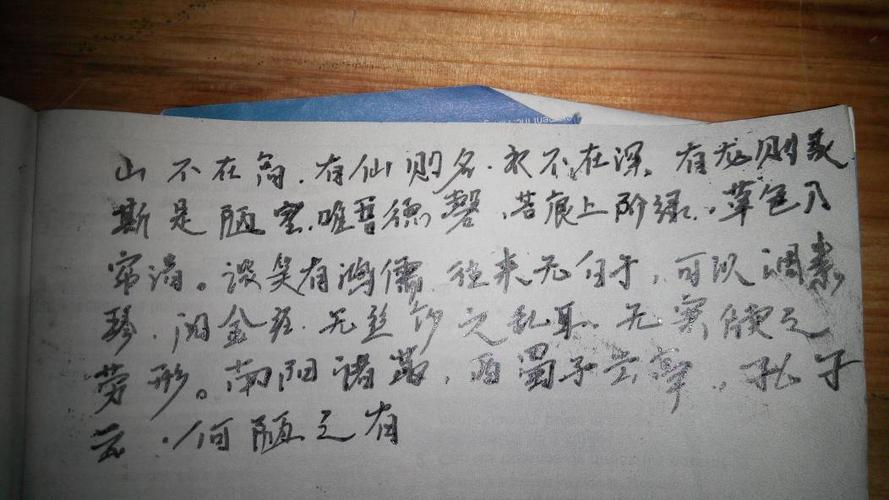 山不在高.有仙则名.水不在深.有龙则灵
斯是陋室.唯吾德馨.苔痕上阶绿.草色入
帘清。谈笑有鸿儒 往来无白丁,可以调素
琴.阅金经.无丝竹之乱耳.无案牍之
劳形。南阳诸葛,西蜀子云亭,孔子
云.何陋之有